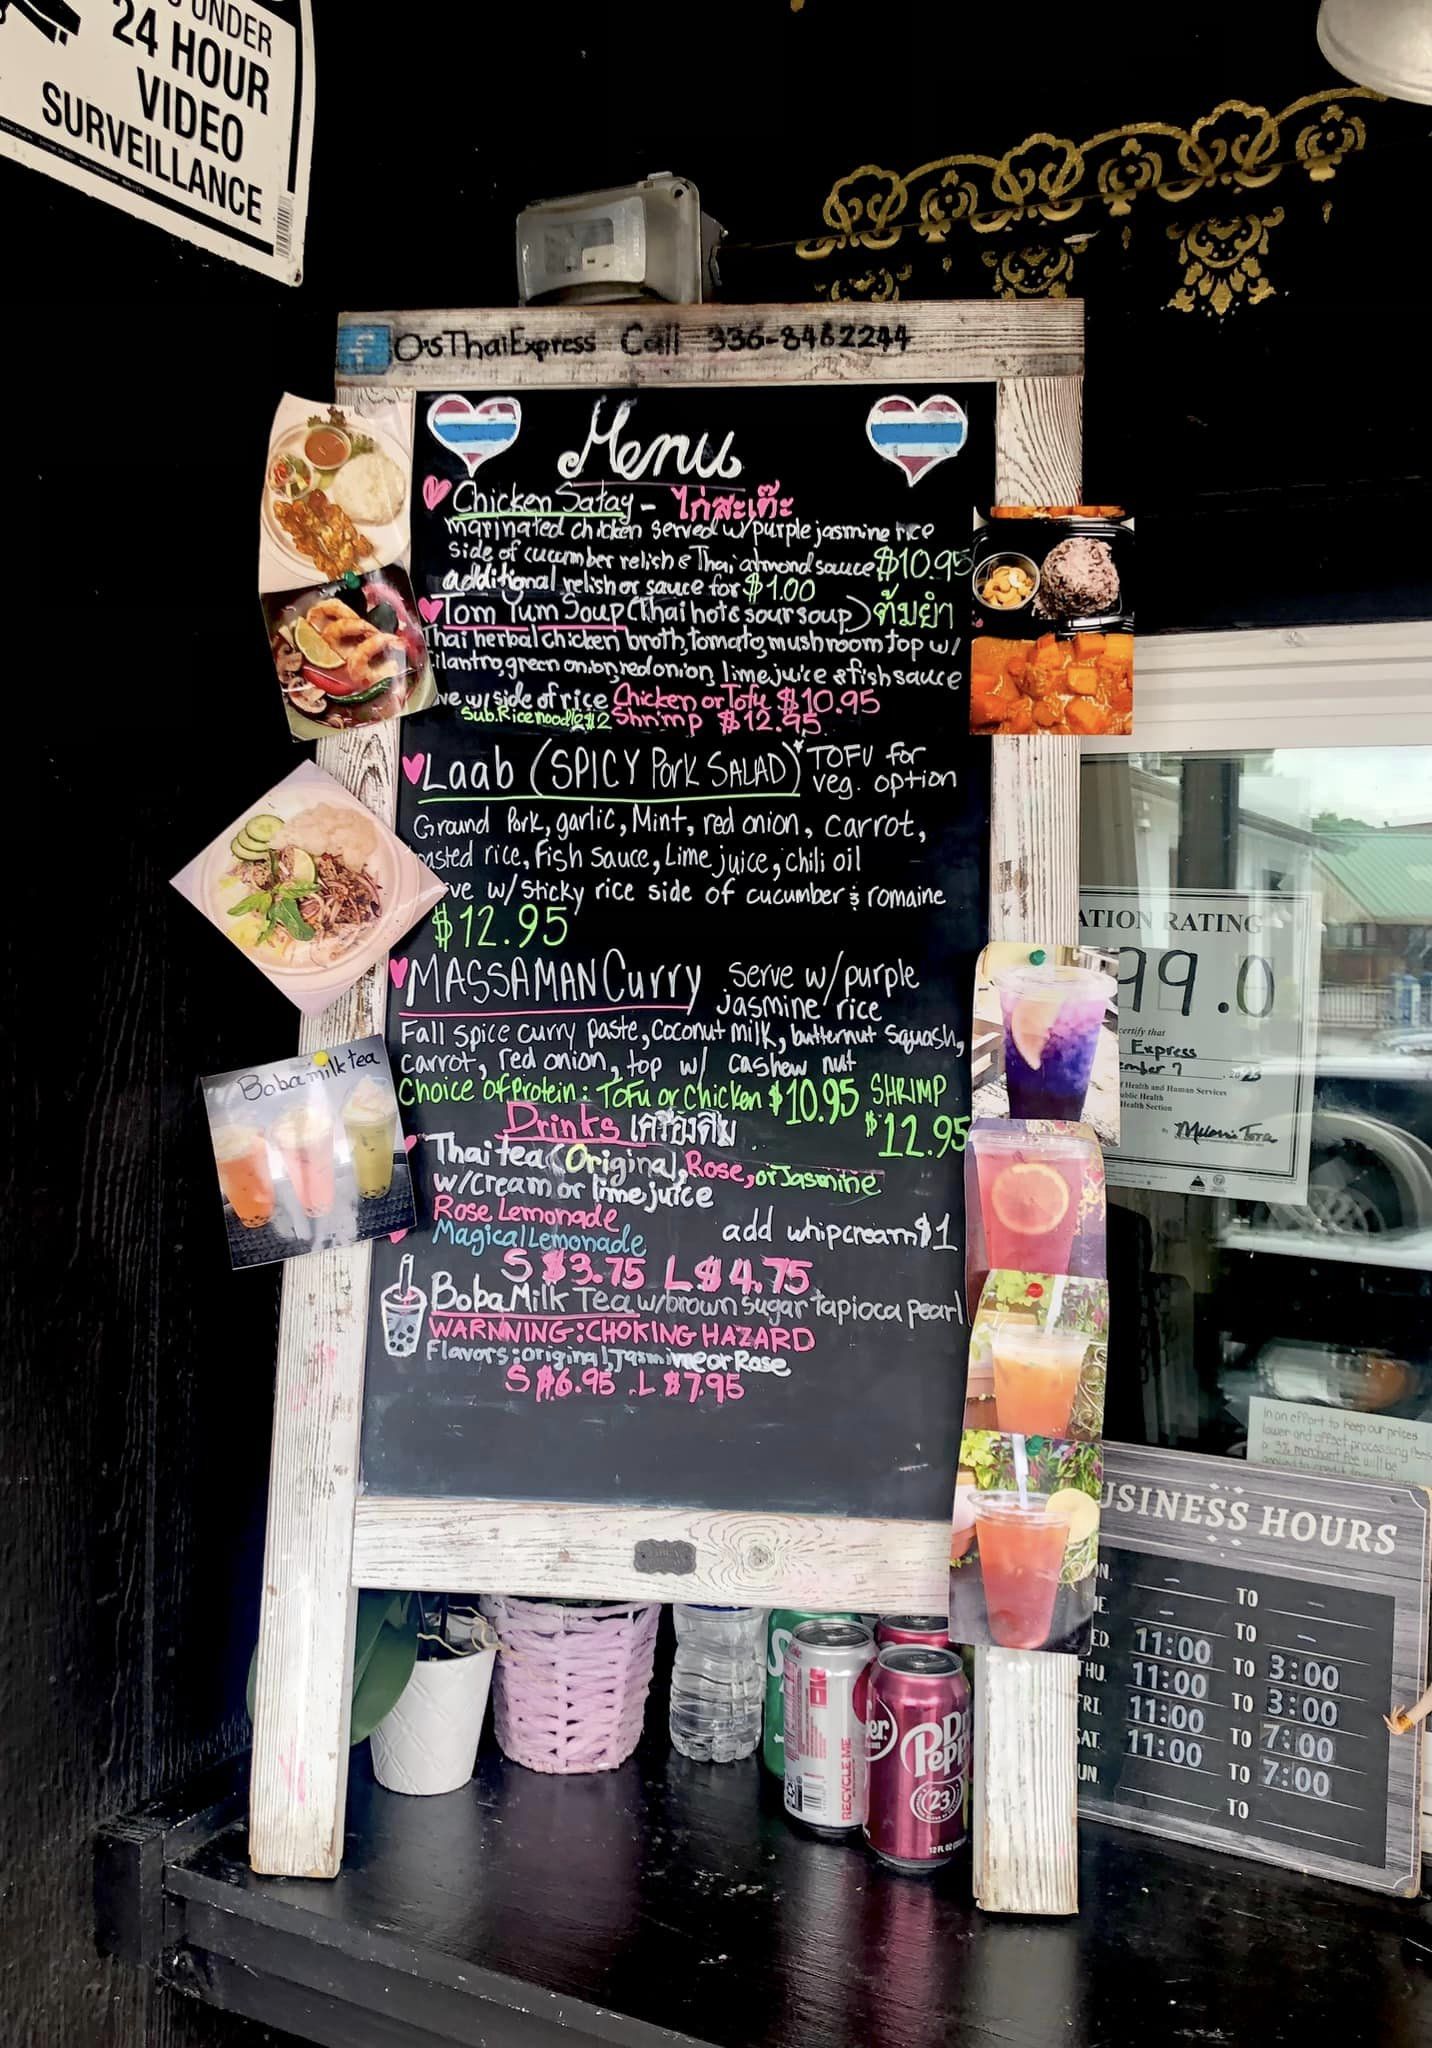 UNDER
24 HOUR
VIDEO
SURVEILLANCE
f O'sThaiExpress Call 336-8482244
Menu
Chicken Satay - ไก่สะเต๊ะ
marinated chicken served w/purple jasmine rice
side of cucumber relish & Thai almond sauce $10.95
additional relish or sauce for $1.00
Tom Yum Soup (Thai hot & sour soup) ต้มยำ
Thai herbal chicken broth, tomato, mushroom top w/
ilantro, green onion, red onion, lime juice & fish sauce
ve w/side of rice Chicken or Tofu $10.95
Sub. Rice noodle $2 Shrimp $12.95
Laab (SPICY Pork SALAD) *TOFU for
veg. option
Ground Pork, garlic, Mint, red onion, carrot,
asted rice, Fish Sauce, Lime juice, chili oil
ve w/ sticky rice side of cucumber & romaine
$12.95
MASSAMAN Curry serve w/purple
jasmine rice
Fall spice curry paste, coconut milk, butternut squash,
carrot, red onion, top w/ cashew nut
Choice of Protein: Tofu or Chicken $10.95 SHRIMP
$12.95
Drinks เครื่องดื่ม
Thai tea (Original, Rose, or Jasmine
w/cream or lime juice
Rose Lemonade
Magical Lemonade add whipcream $1
S $3.75 L $4.75
Boba Milk Tea w/brown sugar tapioca pearl
WARNNING: CHOKING HAZARD
Flavors: original, Jasmine or Rose
S $6.95 L $7.95
Boba milk tea
ATION RATING
99.0
certify that
Express
ember 7, 2023
Health and Human Services
ublic Health
Health Section
By
In an effort to keep our prices
lower and offset processing fees
a 3% merchant fee will be
USINESS HOURS
ON. - TO -
UE. - TO -
ED. 11:00 TO 3:00
THU. 11:00 TO 3:00
FRI. 11:00 TO 7:00
SAT. 11:00 TO 7:00
UN. TO
RECYCLE ME
er.
Dr Pepp
23